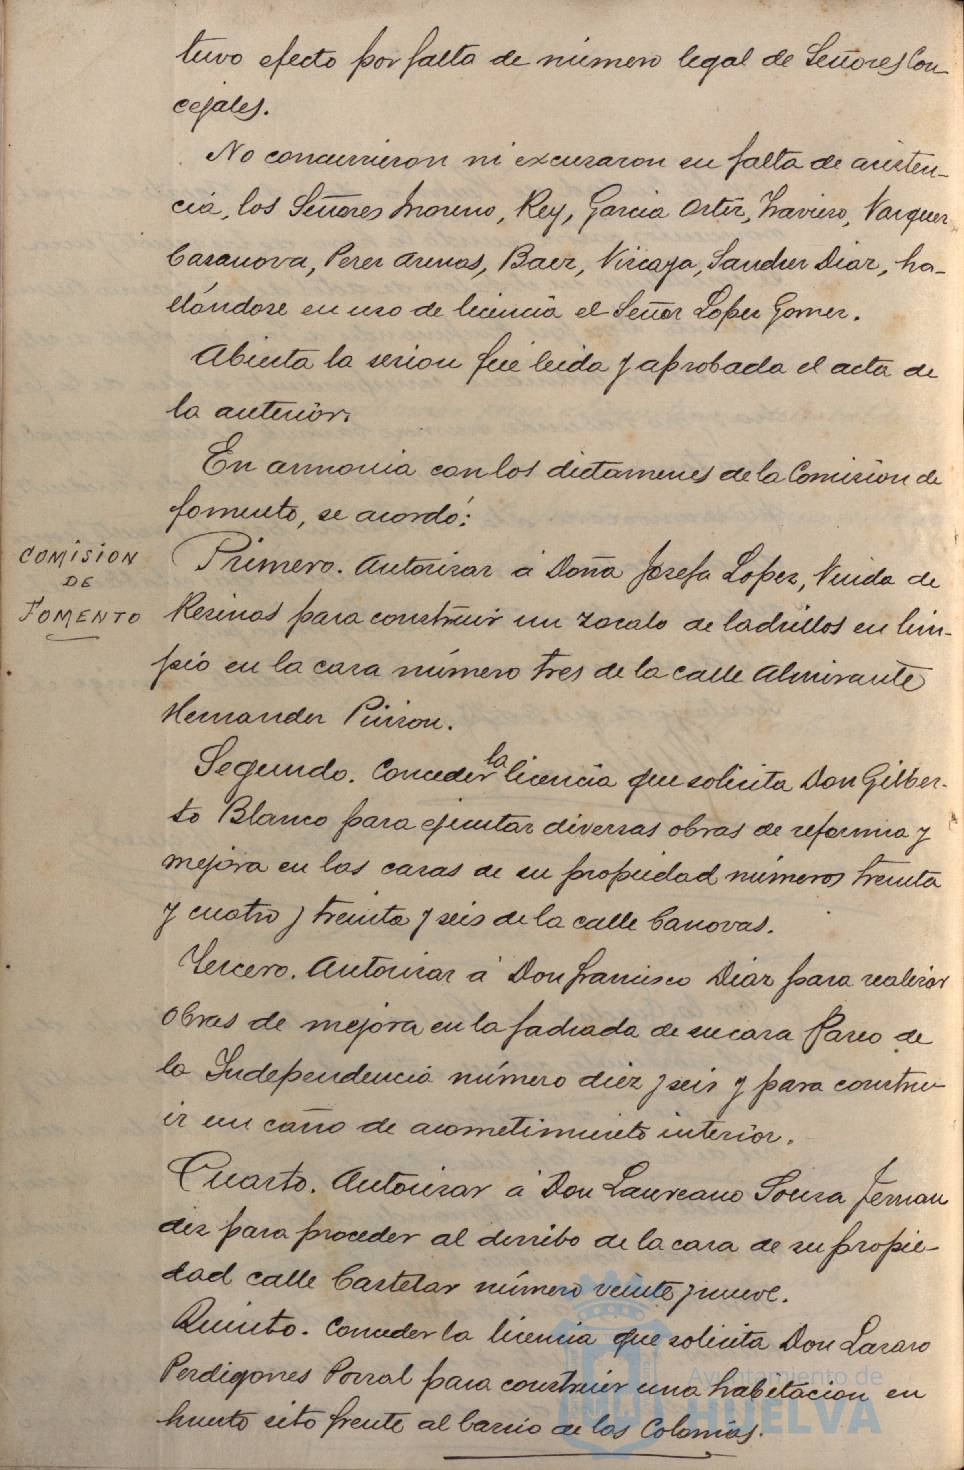 tuvo efecto por falta de número legal de Señores Con-
cejales.
No concurrieron ni excusaron su falta de asisten-
cia, los Señores Moreno, Rey, Garcia Ortiz, Traviero, Vazquez
Casanova, Perez Arenas, Baez, Vizcaya, Sanchez Diaz, ha-
llándose en uso de licencia el Señor Lopez Gomez.
Abierta la sesion fué leida y aprobada el acta de
la anterior.
En armonia con los dictamenes de la Comision de
fomento, se acordó:
COMISION
DE
FOMENTO
Primero. Autorizar á Doña Josefa Lopez, Viuda de
Resinas para construir un zocalo de ladrillos en lim-
pio en la casa número tres de la calle Almirante
Hernandez Pinzon.
Segundo. Conceder la licencia que solicita Don Gilber-
to Blanco para ejecutar diversas obras de reforma y
mejora en las casas de su propiedad números treinta
y cuatro y treinta y seis de la calle Canovas.
Tercero. Autorizar á Don Francisco Diaz para realizar
obras de mejora en la fachada de su casa Paseo de
la Independencia número diez y seis y para constru-
ir un caño de acometimiento interior.
Cuarto. Autorizar á Don Laureano Sousa Fernan
dez para proceder al derribo de la casa de su propie-
dad calle Castelar número veinte y nueve.
Quinto. Conceder la licencia que solicita Don Lazaro
Perdigones Porral para construir una habitacion en
huerto sito frente al barrio de las Colonias.
Ayuntamiento de
HUELVA